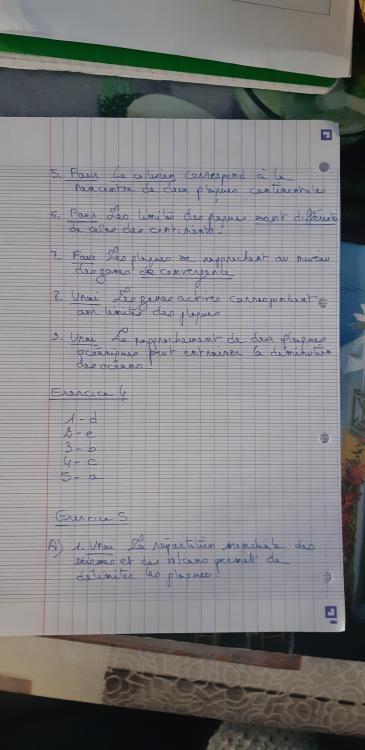 5. Faux La collision correspond à la
rencontre de deux plaques continentales
6. Faux Les limites des plaques sont différentes
de celles des continents.
7. Faux Les plaques se rapprochent au niveau
des zones de convergence
8. Vrai Les zones actives correspondent
aux limites des plaques
9. Vrai Le rapprochement de deux plaques
océaniques peut entrainer la diminution
des océans.
Exercice 4
1 - d
2 - e
3 - b
4 - c
5 - a
Exercice 5
A) 1. Vrai La répartition mondiale des
séismes et des volcans permet de
délimiter les plaques.